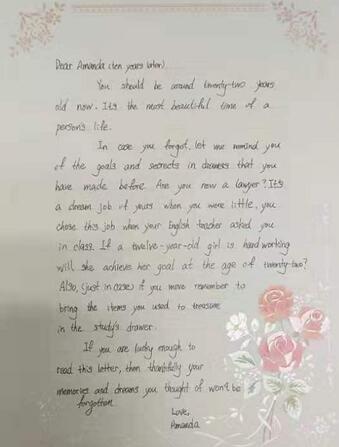 Dear Amanda (ten years later),
You should be around twenty-two years
old now. It's the most beautiful time of a
person's life.
In case you forgot, let me remind you
of the goals and secrects in dreams that you
have made before. Are you now a lawyer? It's
a dream job of yours when you were little, you
chose this job when your English teacher asked you
in class. If a twelve-year-old girl is hard working
will she achieve her goal at the age of twenty-two?
Also, (just in case) if you move remember to
bring the items you used to treasure
in the study's drawer.
If you are lucky enough to
read this letter, then thankfully your
memories and dreams you thought of won't be
forgotten.
Love,
Amanda